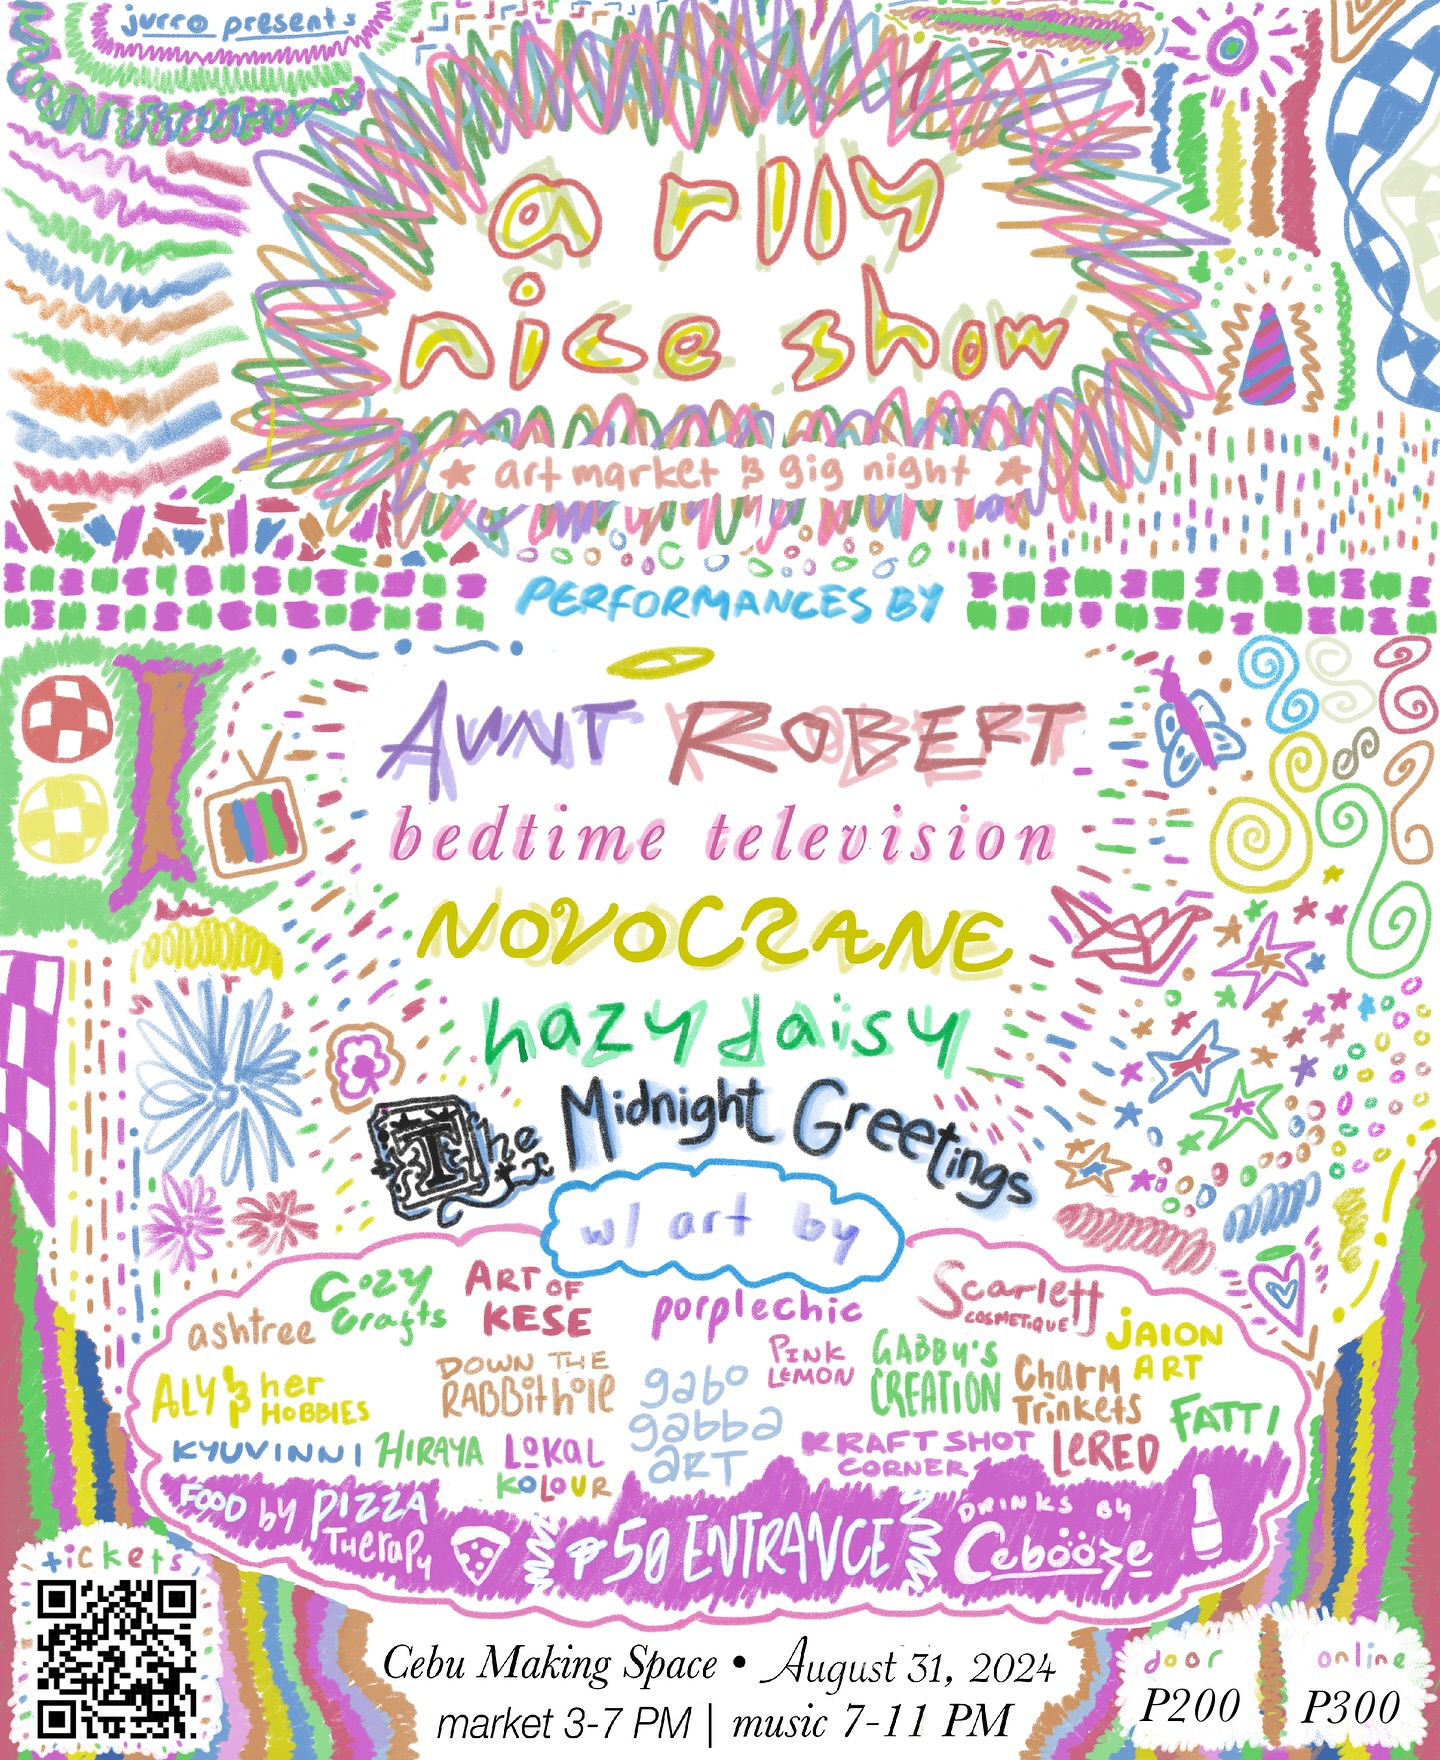 jurro presents
a rlly
nice show
★ art market & gig night ★
PERFORMANCES BY
AUNT ROBERT
bedtime television
NOVOCRANE
hazy daisy
The Midnight Greetings
w/ art by
ashtree
Cozy Crafts
ART OF KESE
porplechic
Scarlett COSMETIQUE
JAION ART
ALY & her HOBBIES
DOWN THE RABBithole
gabo gabba ART
PINK LEMON
GABBY'S CREATION
Charm Trinkets
FATTI
KYUVINNI
HIRAYA
LOKAL KOLOUR
KRAFT SHOT CORNER
LERED
FOOD by PIZZA Therapy
₱50 ENTRANCE
DRINKS BY Cebooze
tickets
Cebu Making Space • August 31, 2024
market 3-7 PM | music 7-11 PM
door
P200
online
P300